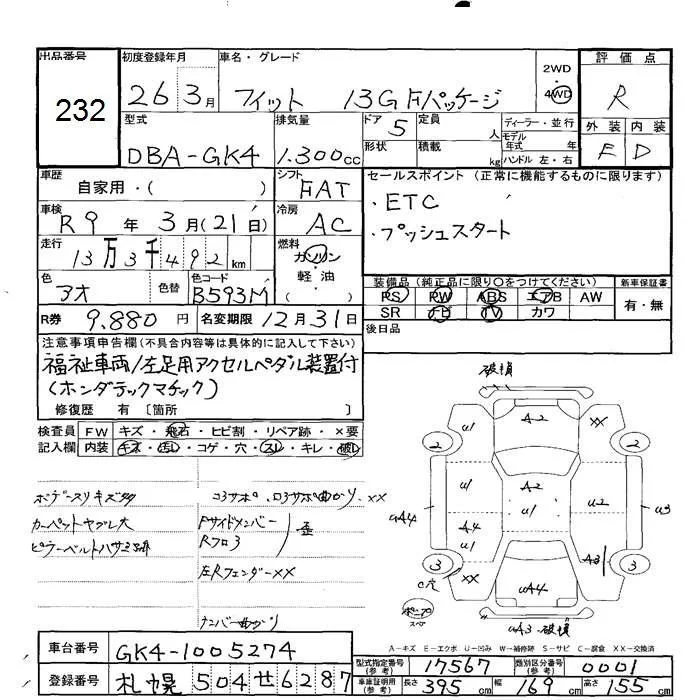 出品番号
232
初度登録年月
26 3月
車名・グレード
フィット 13G Fパッケージ
2WD
4WD
評価点
R
外装 内装
E D
型式
DBA-GK4
排気量
1.300cc
ドア 5
形状
定員 人
積載 kg
ディーラー・並行
モデル年式 年
ハンドル 左・右
車歴
自家用・( )
シフト
FAT
セールスポイント (正常に機能するものに限ります)
・ETC
・プッシュスタート
車検
R9年 3月(21日)
冷房
AC
走行
13万3千492km
燃料
ガソリン
軽・油
色
アオ
色替
色コード
B593M
装備品 (純正品に限り○をつけてください)
PS PW ABS エアB AW
SR ナビ TV カワ
新車保証書
有・無
R券 9.880円
名変期限 12月31日
後日品
注意事項申告欄(不具合内容等は具体的に記入して下さい)
福祉車両/左足用アクセルペダル装置付
(ホンダテックマチック)
修復歴 有 〔箇所 〕
検査員記入欄
FW キズ・飛石・ヒビ割・リペア跡・×要
内装 キズ・汚レ・コゲ・穴・スレ・キレ・破レ
ボデースリキズ多
カーペットヤブレ大
ピラーベルトハサミ跡
コアサポ、ロアサポ曲がり、××
Fサイドメンバー
Rフロア
歪
左Rフェンダー××
ナンバー曲がり
破損
u1
A2
××
2
2
u1
A2
u1
u2
u3
uA4
A4
u1
A3
3
3
C穴
××
uA4
uA3 破損
A－キズ E－エクボ U－凹み W－補修跡 S－サビ C－腐食 XX－交換済
車台番号 GK4-1005274
登録番号 札幌 504 せ 6287
型式指定番号(参考) 17567
類別区分番号(参考) 0001
車庫証明用(参考) 長さ 395cm 幅 169cm 高さ 155cm